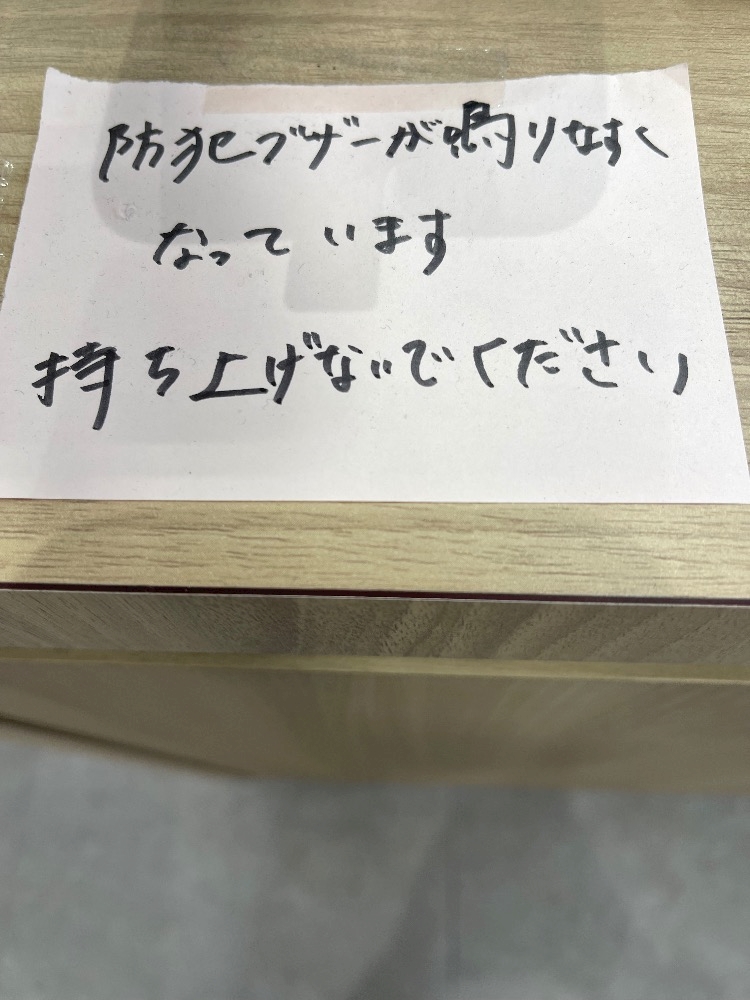 防犯ブザーが鳴りなすく
なっています
持ち上げないでください